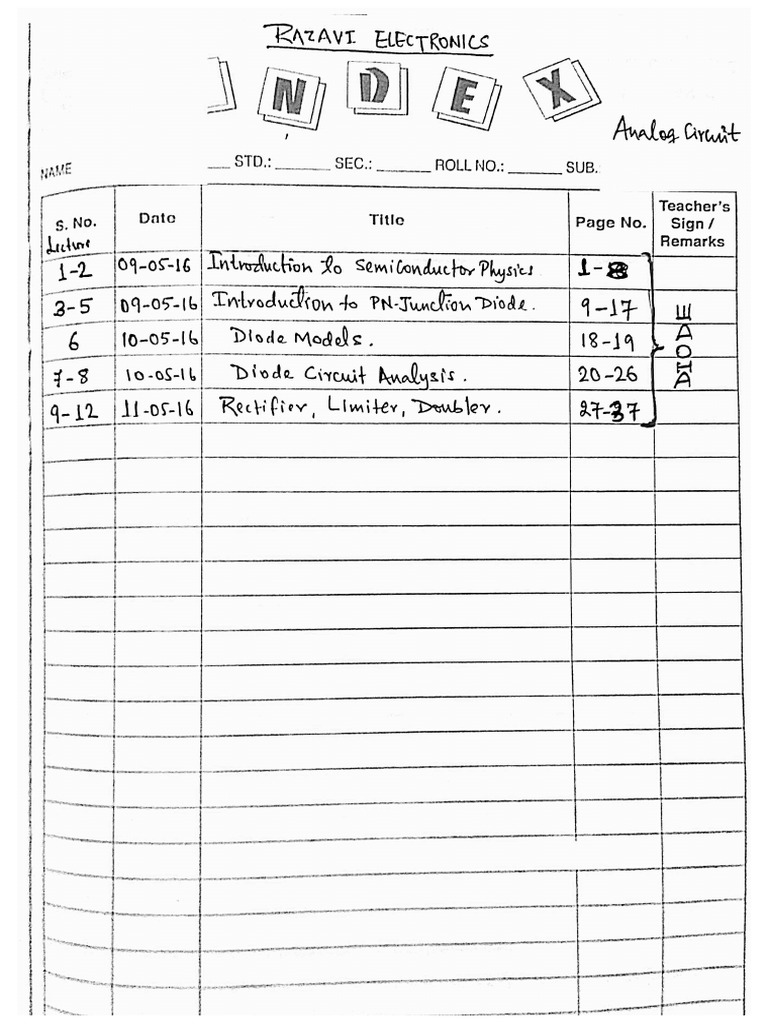 RAZAVI ELECTRONICS
N D E X
Analog Circuit
NAME STD.: SEC.: ROLL NO.: SUB.
S. No. Date Title Page No. Teacher's Sign / Remarks
Lecture
1-2 09-05-16 Introduction to Semiconductor Physics 1-8
3-5 09-05-16 Introduction to PN-Junction Diode. 9-17
6 10-05-16 Diode Models. 18-19
7-8 10-05-16 Diode Circuit Analysis. 20-26
9-12 11-05-16 Rectifier, Limiter, Doubler. 27-37